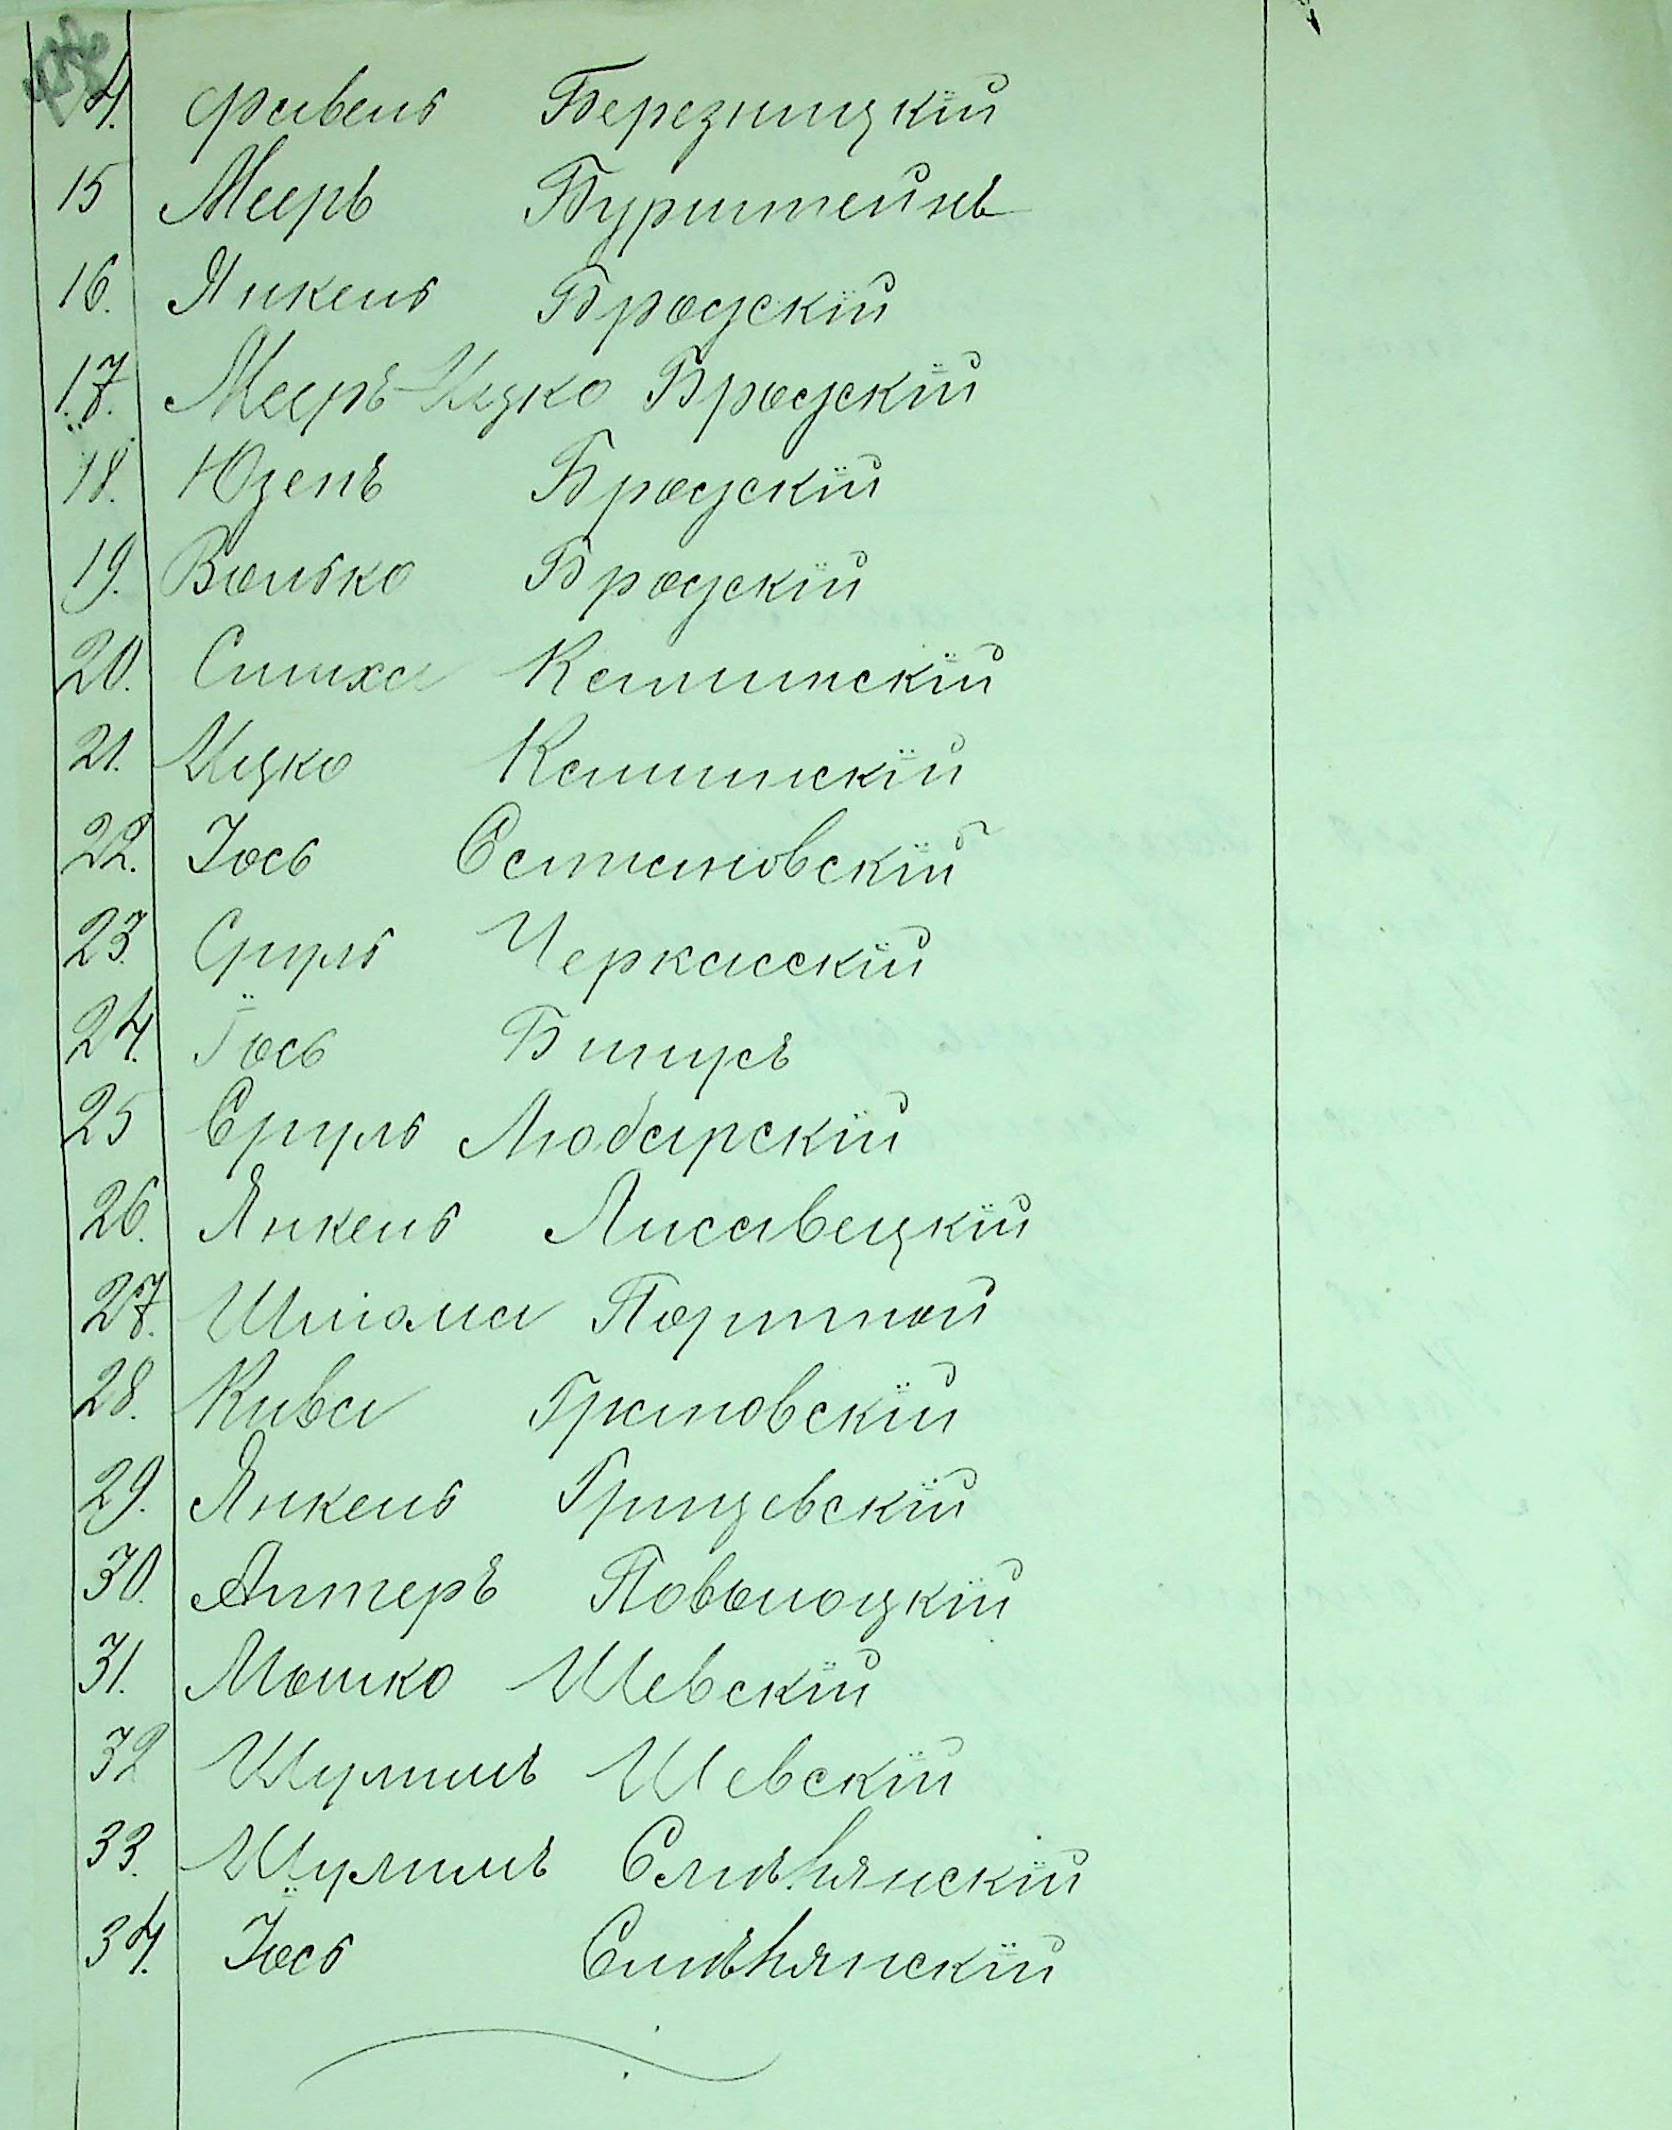 14. Фавель Березницкій
15 Мееръ Бурштейнъ
16. Янкель Бродскій
17. Мееръ-Ицко Бродскій
18. Юдель Бродскій
19. Волько Бродскій
20. Симха Каминскій
21. Ицко Каминскій
22. Іось Остановскій
23. Сруль Черкасскій
24. Іось Бинусъ
25 Сруль Любарскій
26. Янкель Лисавецкій
27. Шлёма Портной
28. Кива Грановскій
29. Янкель Грицевскій
30. Алтеръ Поволоцкій
31. Мошко Шевскій
32 Шулимъ Шевскій
33. Шулимъ Смѣлянскій
34. Іось Смѣлянскій